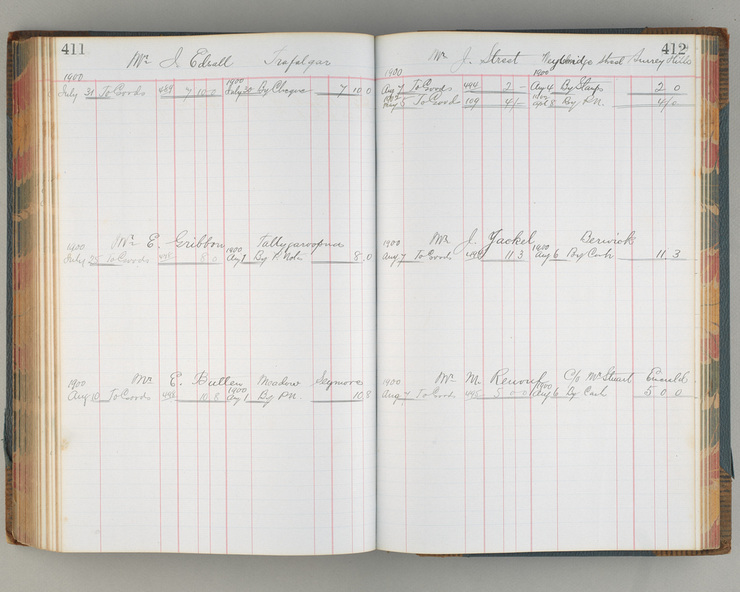 411
Mr J. Edsall Trafalgar
1900 1900
July 31 To Goods 489 7 10 0 July 30 By Cheque 7 10 0
1900 Mr E. Gribbon
1900
July 25 To Goods 8 0 Aug 1 By P. Note 8 0
1900 Mr E. Butten Meadow Seymore
1900
Aug 10 To Goods 498 10 8 Aug 1 By P.N. 10 8
412
Mr J. Street Weybridge Street Surrey Hills
1900 1900
Aug 7 To Goods 494 2 - Aug 4 By Stamps 2 0
1902 1902
5 To Goods 109 4/- 8 By P.N. 4/0
1900 Mr J. Yackel Berwick
1900
Aug 7 To Goods 494 11 3 Aug 6 By Cash 11 3
1900 Mr M. Renouf C/o Mr Stuart Emerald
1900
Aug 7 To Goods 495 5 0 0 Aug 6 By Cash 5 0 0